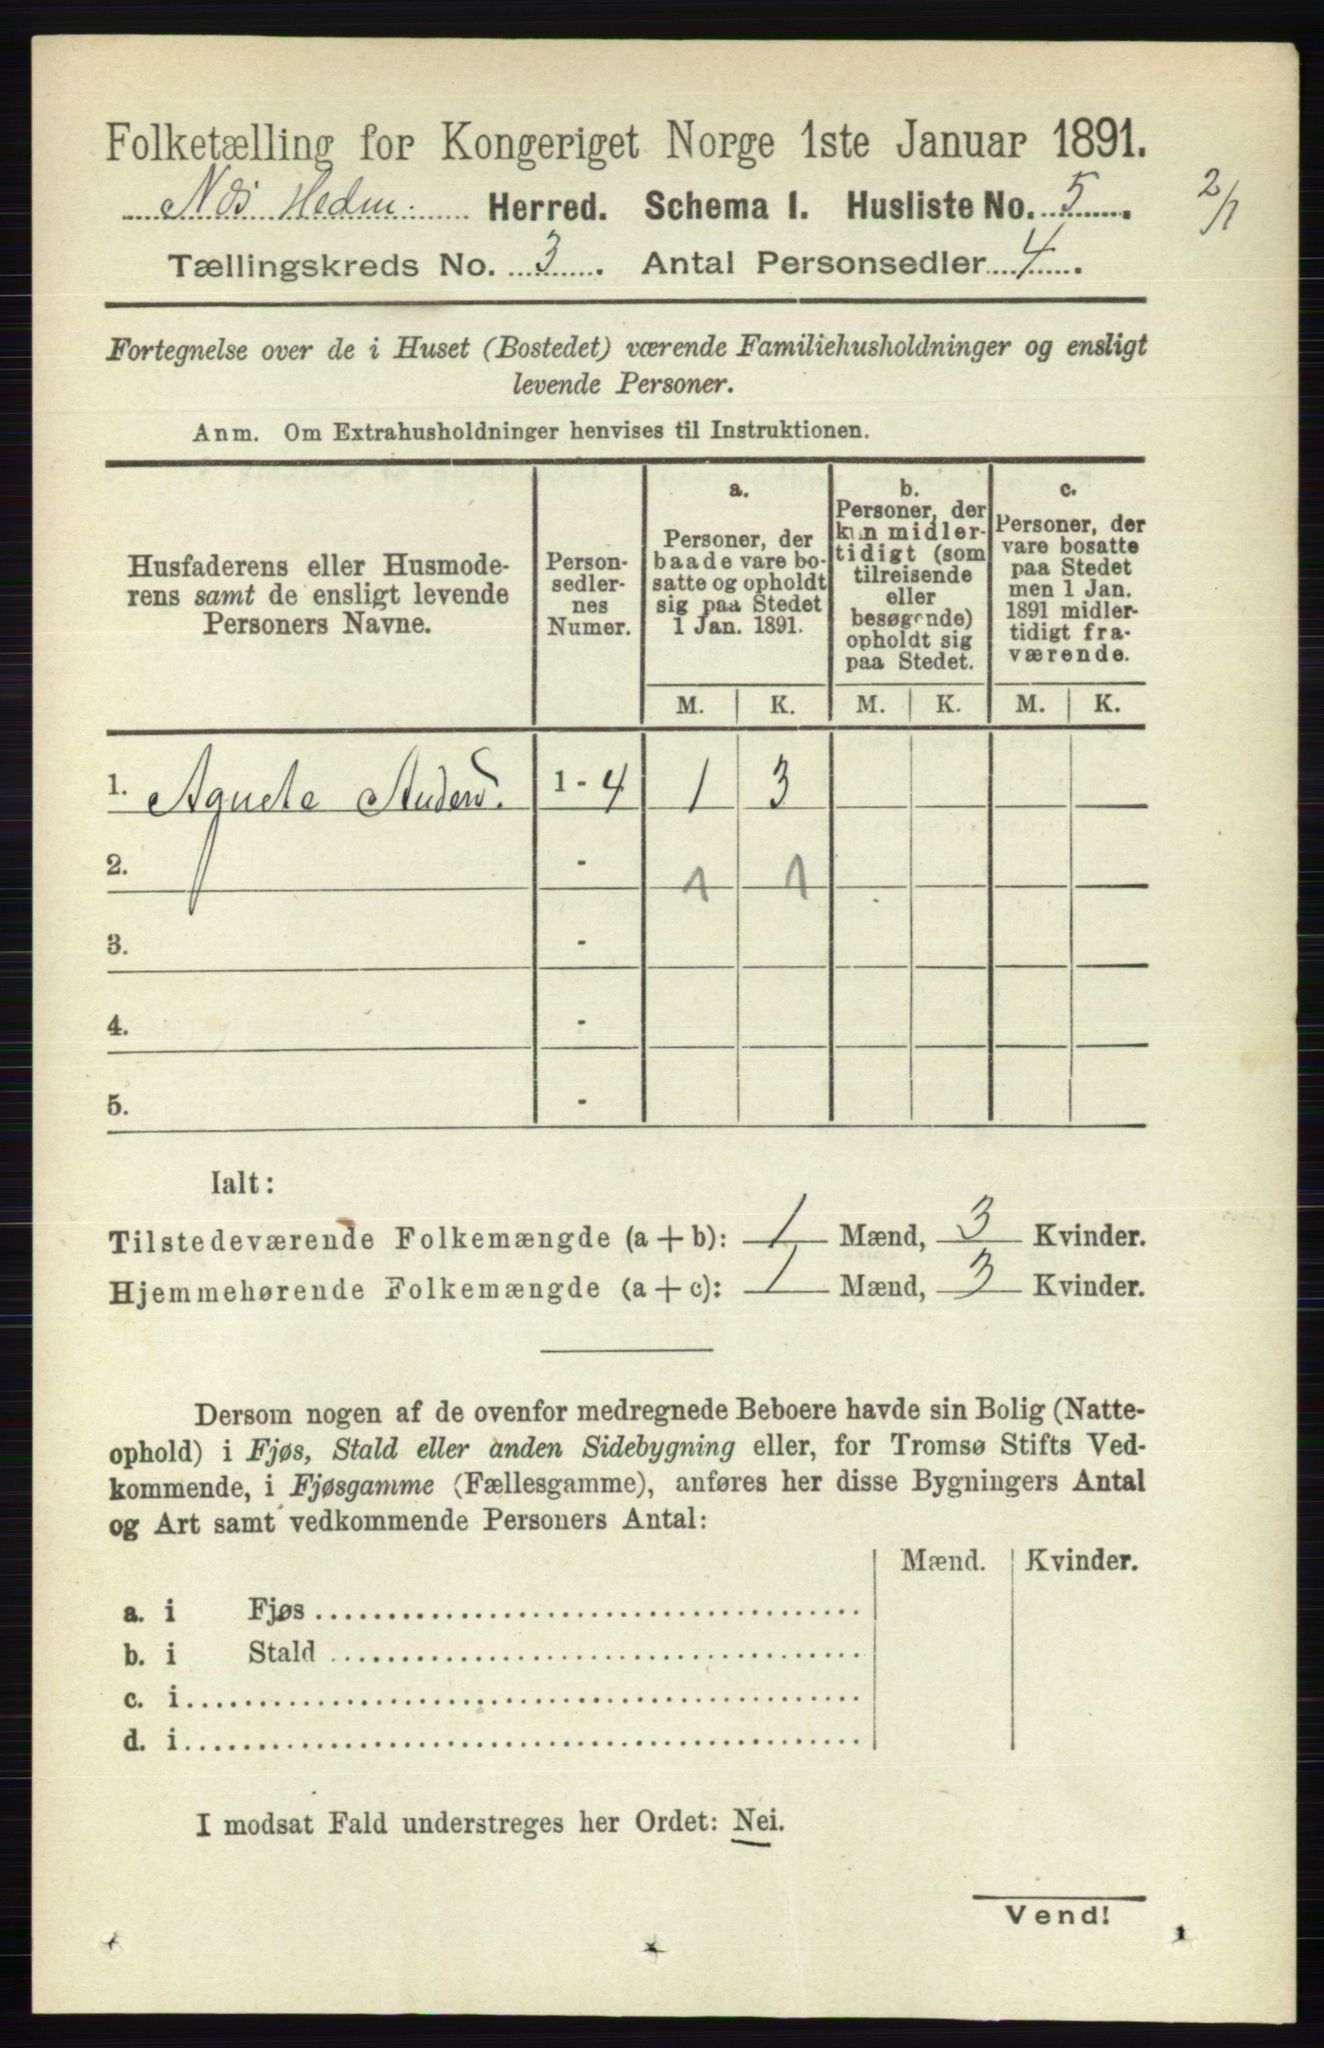 Folketælling for Kongeriget Norge 1ste Januar 1891.
Næs Hedm. Herred. Schema I. Husliste No. 5. 2/1
Tællingskreds No. 3. Antal Personsedler 4.
Fortegnelse over de i Huset (Bostedet) værende Familiehusholdninger og ensligt
levende Personer.
Anm. Om Extrahusholdninger henvises til Instruktionen.
Husfaderens eller Husmode-
rens samt de ensligt levende
Personers Navne.
Person-
sedler-
nes
Numer.
a.
Personer, der
baade vare bo-
satte og opholdt
sig paa Stedet
1 Jan. 1891.
b.
Personer, der
kun midler-
tidigt (som
tilreisende
eller
besøgende)
opholdt sig
paa Stedet.
c.
Personer, der
vare bosatte
paa Stedet
men 1 Jan.
1891 midler-
tidigt fra-
værende.
M. K. M. K. M. K.
1. Agnete Andersd. 1 - 4 1 3
2. - 1 1
3. -
4. -
5. -
Ialt:
Tilstedeværende Folkemængde (a + b): 1 Mænd, 3 Kvinder.
Hjemmehørende Folkemængde (a + c): 1 Mænd, 3 Kvinder.
Dersom nogen af de ovenfor medregnede Beboere havde sin Bolig (Natte-
ophold) i Fjøs, Stald eller anden Sidebygning eller, for Tromsø Stifts Ved-
kommende, i Fjøsgamme (Fællesgamme), anføres her disse Bygningers Antal
og Art samt vedkommende Personers Antal:
Mænd. Kvinder.
a. i Fjøs
b. i Stald
c. i
d. i
I modsat Fald understreges her Ordet: Nei.
Vend!